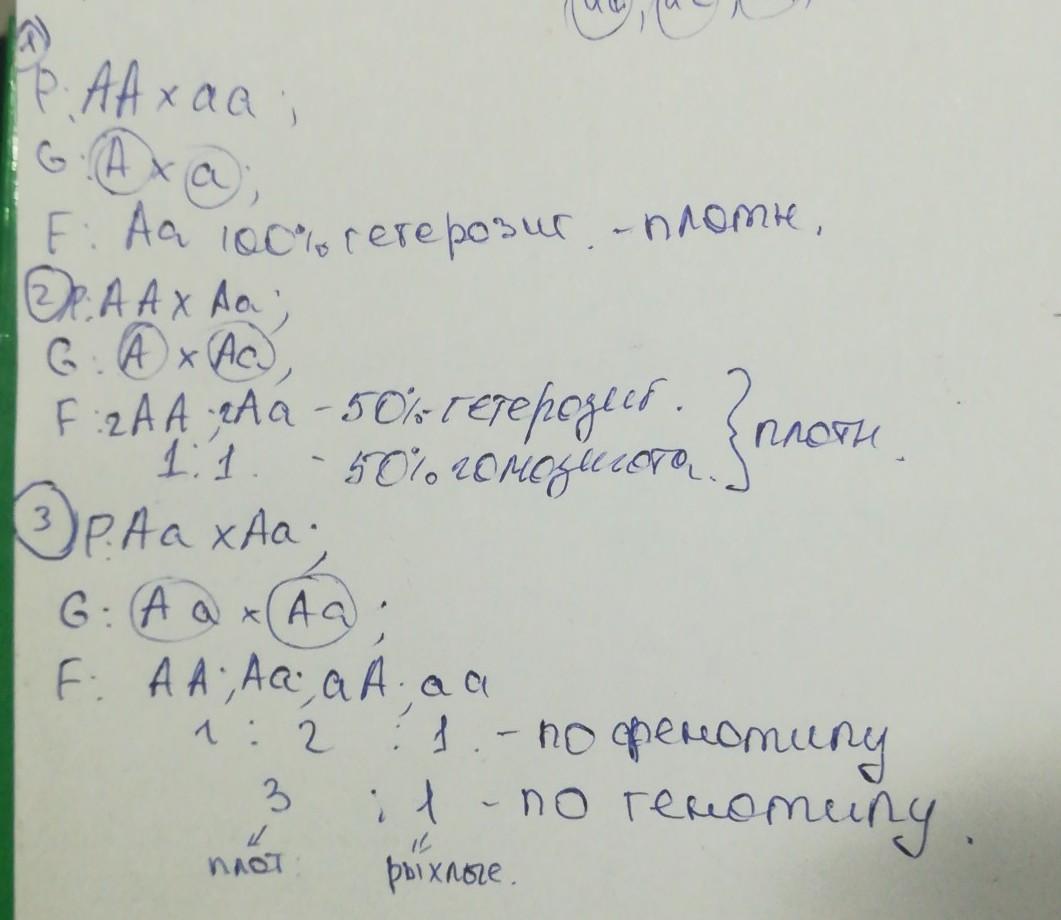 1
P: AA x aa;
G: A x a;
F: Aa 100% гетерозиг. - плотн.
2 P: AA x Aa;
G: A x Aa,
F: 2AA; 2Aa - 50% гетерозиг. } плотн.
1:1. - 50% гомозигота.
3 P: Aa x Aa;
G: A a x Aa;
F: AA; Aa; aA; aa
1 : 2 : 1. - по фенотипу
3 : 1 - по генотипу.
плот. рыхлые.